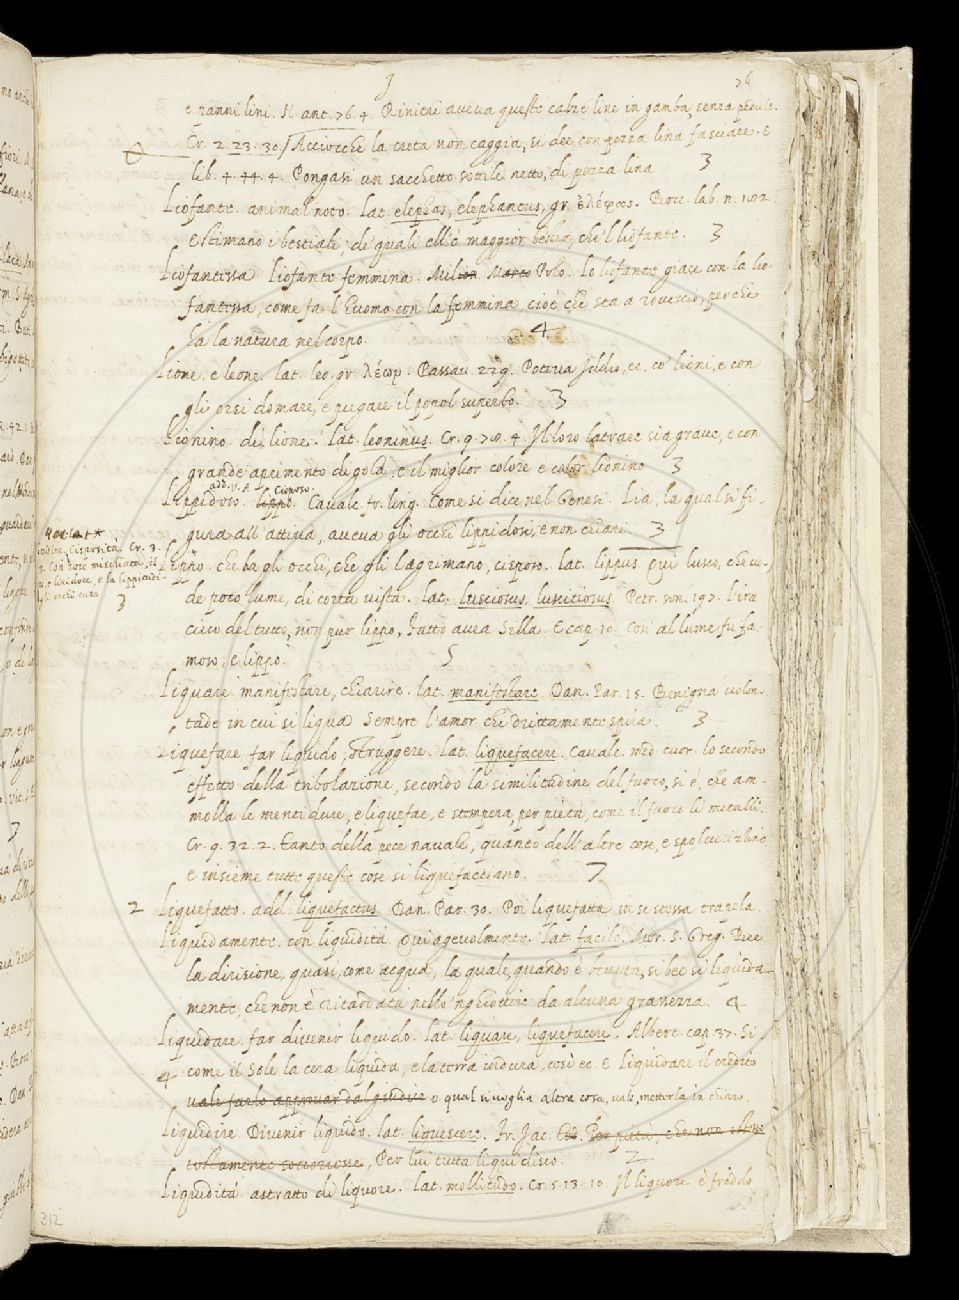 76
e ranni lini. N. ant. 76. 4. Rinieri aveva queste calze line in gamba, senza pedule.
Cr. 2. 23. 30. Acciocchè la creta non caggia, si dee con pezza lina fasciare. E
lib. 4. 44. 4. Pongasi un sacchetto sottile netto, di pezza lina 3
Liofante. animal noto. Lat. elephas, elephantus, gr. ἐλέφας. Bocc. lab. n. 182
Estimano i bestiali, de quali ell'è maggior bestia, ch'l liofante. 3
Liofantessa liofante femmina. Milion Marco Polo. Lo liofante giace con la lio
fantessa, come fa l'huomo con la femmina, cioè che sta a rovescio, perchè
ha la natura nel corpo. 4
Lione, e leone. lat. leo, gr. λέων. Passav. 229. Poteva Iddio, ec, co' lioni, e con
gli orsi domare, e piegare il popol superbo. 3
Lionino. di lione. Lat. leoninus. Cr. 9. 78. 4. Il loro latrare sia grave, e con
grande aprimento di gola, e il miglior colore e color lionino 3
add. V. A. Cisposo.
Lippidoso. lippo. Cavalc. fr. ling. Come si dice nel Genesi. Lia, la qual si fi-
gura all'attiva, aveva gli occhi lippidosi, e non chiari. 3
Lippo. che ha gli occhi, che gli lagrimano, cisposo. lat. lippus. Qui lusco, che ve-
de poco lume, di corta vista. Lat. lusciosus, luscitiosus. Petr. son. 197. L'ira
cieco del tutto, non pur lippo, Fatto avea Silla. E cap. 10. Con al lume fu fa-
moso, e lippo. 5
Cisposità. Cr. 3.
3
Liquare manifestare, chiarire. lat. manifestare. Dan. Par. 15. Benigna volon-
tade in cui si liqua Sempre l'amor, che drittamente spira. 3
Liquefare far liquido, struggere. lat. liquefacere. Cavalc. med. cuor. lo secondo
effetto della tribolazione, secondo la similitudine del fuoco, si è, che am-
molla le menti dure, e liquefae, e stempera, per pietà, come il fuoco li metalli.
Cr. 9. 32. 2. tanto della pece navale, quanto dell'altre cose, e spolverizhino
e insieme tutte queste cose si liquefacciano. 7
2 Liquefatto. add. liquefactus. Dan. Par. 30. Poi liquefatta in se stessa trapela.
Liquidamente. con liquidità. Qui agevolmente. Lat. facile. Mor. S. Greg. Bee
la divisione, quasi, come acqua, la quale, quando è bevuta, si bee sì liquida-
mente, che non è ritardata nello 'nghiottire da alcuna grassezza. 4
Liquidare. far divenir liquido. lat. liquare, liquefacere. Albert. cap. 37. Sì
4 come il Sole la cera liquida, e la terra indura, così ec. E Liquidare il credito
vale farlo approvar dal giudice o qual si voglia altra cosa, vale, metterla in chiaro.
Liquidire. Divenir liquido. lat. liquescere. Fr. Jac. Per pietà, che non
tostamente soccorresse, Per lui tutta liquidisco. 2
Liquidità astratto di liquore. lat. mollitudo. Cr. 5. 13. 10. Il liquore è freddo
312